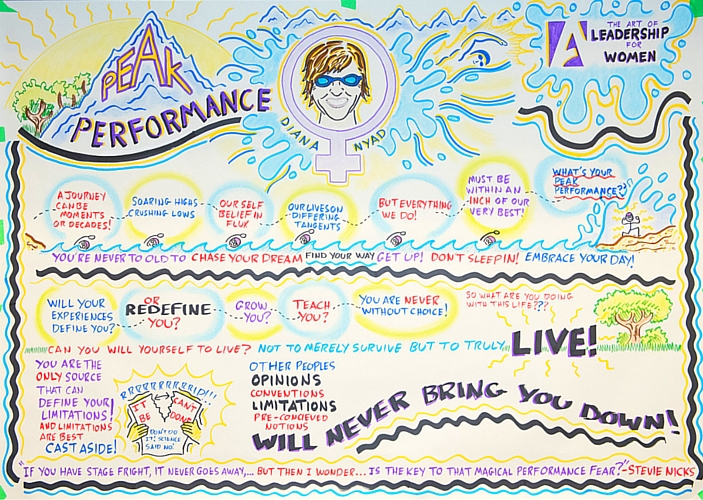 PEAK
PERFORMANCE
DIANA
NYAD
A
THE ART OF
LEADERSHIP
FOR
WOMEN
A JOURNEY
CAN BE
MOMENTS
OR DECADES!
SOARING HIGHS
CRUSHING LOWS
OUR SELF
BELIEF IN
FLUX
OUR LIVES ON
DIFFERING
TANGENTS
BUT EVERYTHING
WE DO!
MUST BE
WITHIN AN
INCH OF OUR
VERY BEST!
WHAT'S YOUR
PEAK
PERFORMANCE?
YOU'RE NEVER TO OLD TO CHASE YOUR DREAM FIND YOUR WAY GET UP! DON'T SLEEP IN! EMBRACE YOUR DAY!
WILL YOUR
EXPERIENCES
DEFINE YOU?
OR
REDEFINE
YOU?
GROW
YOU?
TEACH
YOU?
YOU ARE NEVER
WITHOUT CHOICE!
SO WHAT ARE YOU DOING
WITH THIS LIFE???
CAN YOU WILL YOURSELF TO LIVE? NOT TO MERELY SURVIVE BUT TO TRULY LIVE!
YOU ARE THE
ONLY SOURCE
THAT CAN
DEFINE YOUR
LIMITATIONS!
AND LIMITATIONS
ARE BEST
CAST ASIDE!
IT
BE
CAN'T
DONE
DON'T DO
IT! SCIENCE
SAID NO!
OTHER PEOPLES
OPINIONS
CONVENTIONS
LIMITATIONS
PRE-CONCIEVED
NOTIONS
WILL NEVER BRING YOU DOWN!
"IF YOU HAVE STAGE FRIGHT, IT NEVER GOES AWAY,... BUT THEN I WONDER... IS THE KEY TO THAT MAGICAL PERFORMANCE FEAR?"-STEVIE NICKS